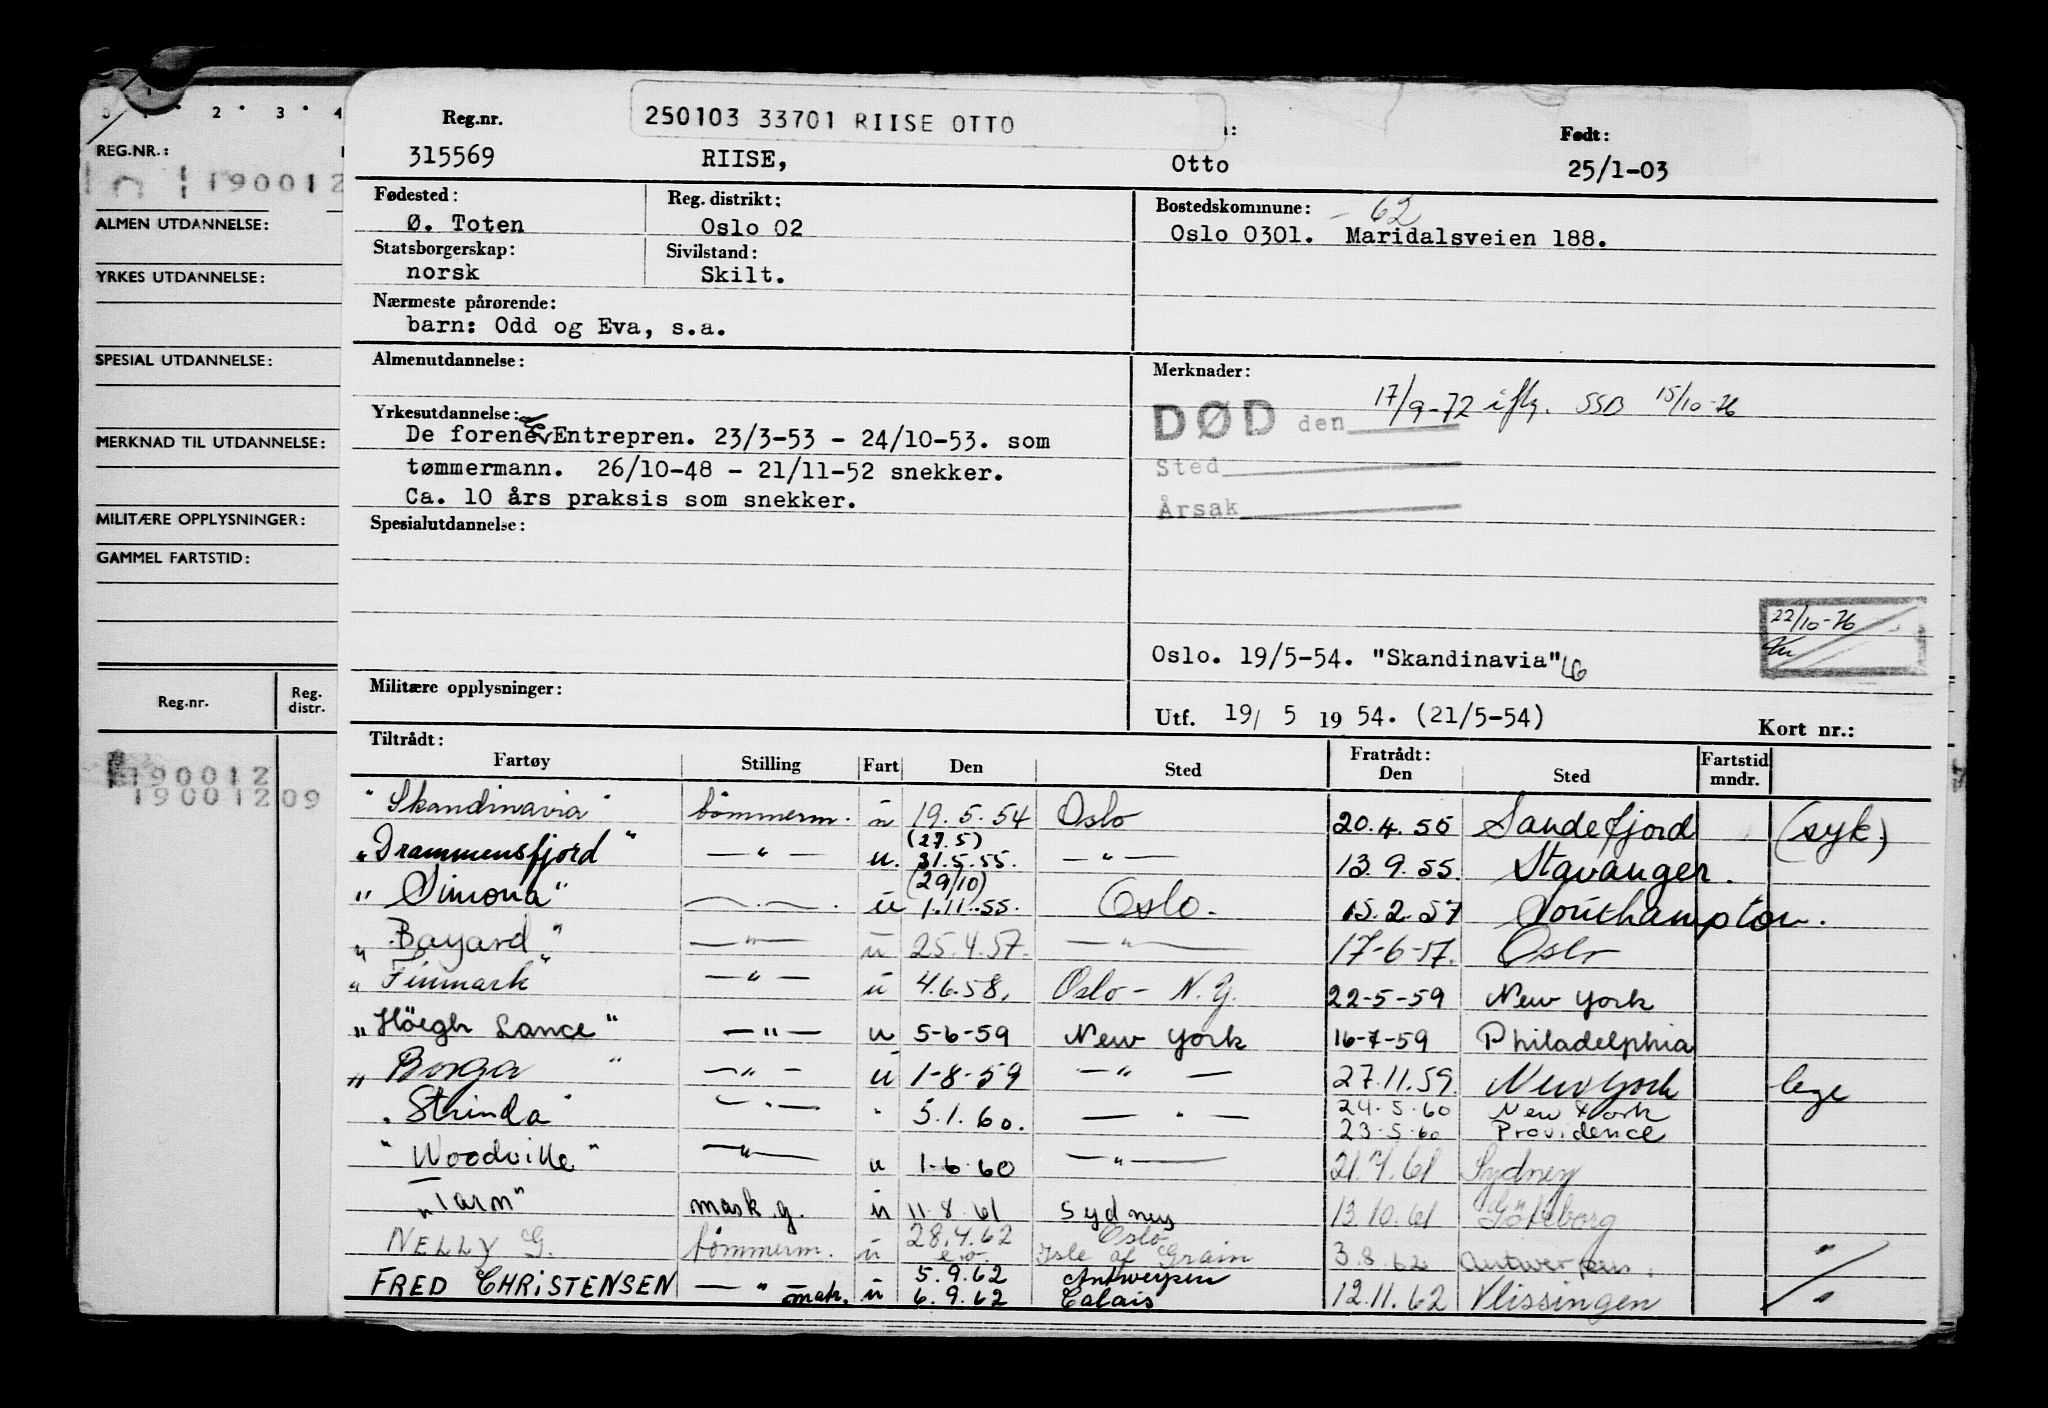 2 3 4
REG.NR.:
190012
ALMEN UTDANNELSE:
YRKES UTDANNELSE:
SPESIAL UTDANNELSE:
MERKNAD TIL UTDANNELSE:
MILITÆRE OPPLYSNINGER:
GAMMEL FARTSTID:
Reg.nr. Reg. distr.
190012
190012 09
250103 33701 RIISE OTTO
Reg.nr. Født:
315569 RIISE, Otto 25/1-03
Fødested: Reg. distrikt: Bostedskommune: - 62
Ø. Toten Oslo 02 Oslo 0301. Maridalsveien 188.
Statsborgerskap: Sivilstand:
norsk Skilt.
Nærmeste pårørende:
barn: Odd og Eva, s.a.
Almenutdannelse: Merknader:
DØD den 17/9-72 iflg. SSB 15/10-76
Sted
Årsak
Yrkesutdannelse:
De forene Entrepren. 23/3-53 - 24/10-53. som
tømmermann. 26/10-48 - 21/11-52 snekker.
Ca. 10 års praksis som snekker.
Spesialutdannelse:
22/10-76
Oslo. 19/5-54. "Skandinavia"
Militære opplysninger:
Utf. 19/ 5 19 54. (21/5-54) Kort nr.:
Tiltrådt: Fratrådt: Fartstid
Fartøy Stilling Fart Den Sted Den Sted mndr.
"Skandinavia" tømmerm. u 19.5.54 Oslo 20.4.55 Sandefjord (syk.)
"Drammensfjord" — " — u. (27.5) 31.5.55. — " — 13.9.55. Stavanger.
"Simona" — " — u (29/10) 1.11.55. Oslo. 15.2.57 Southampton.
"Bayard" — " — u 25.4.57. — " — 17-6-57. Oslo
"Finmark" — " — u 4.6.58. Oslo - N.Y. 22-5-59 New York
"Höegh Lance" — " — u 5-6-59 New York 16-7-59 Philadelphia
"Borga" — " — u 1-8-59 — " — 27.11.59. New York lege
"Strinda" — " — " 5.1.60. — " — 24.5.60 New York
23.5.60 Providence
"Woodville" — " — u 1-6-60 — " — 21.7.61 Sydney
"Tarn" mask.g. u 11.8.61 Sydney 13.10.61 Göteborg
NELLY G. tømmerm. u 28.4.62 Oslo
Isle of Grain 3.8.62 Antwerpen "
FRED CHRISTENSEN — " — u 5.9.62 Antwerpen
mat. 6.9.62 Calais 12.11.62 Vlissingen "